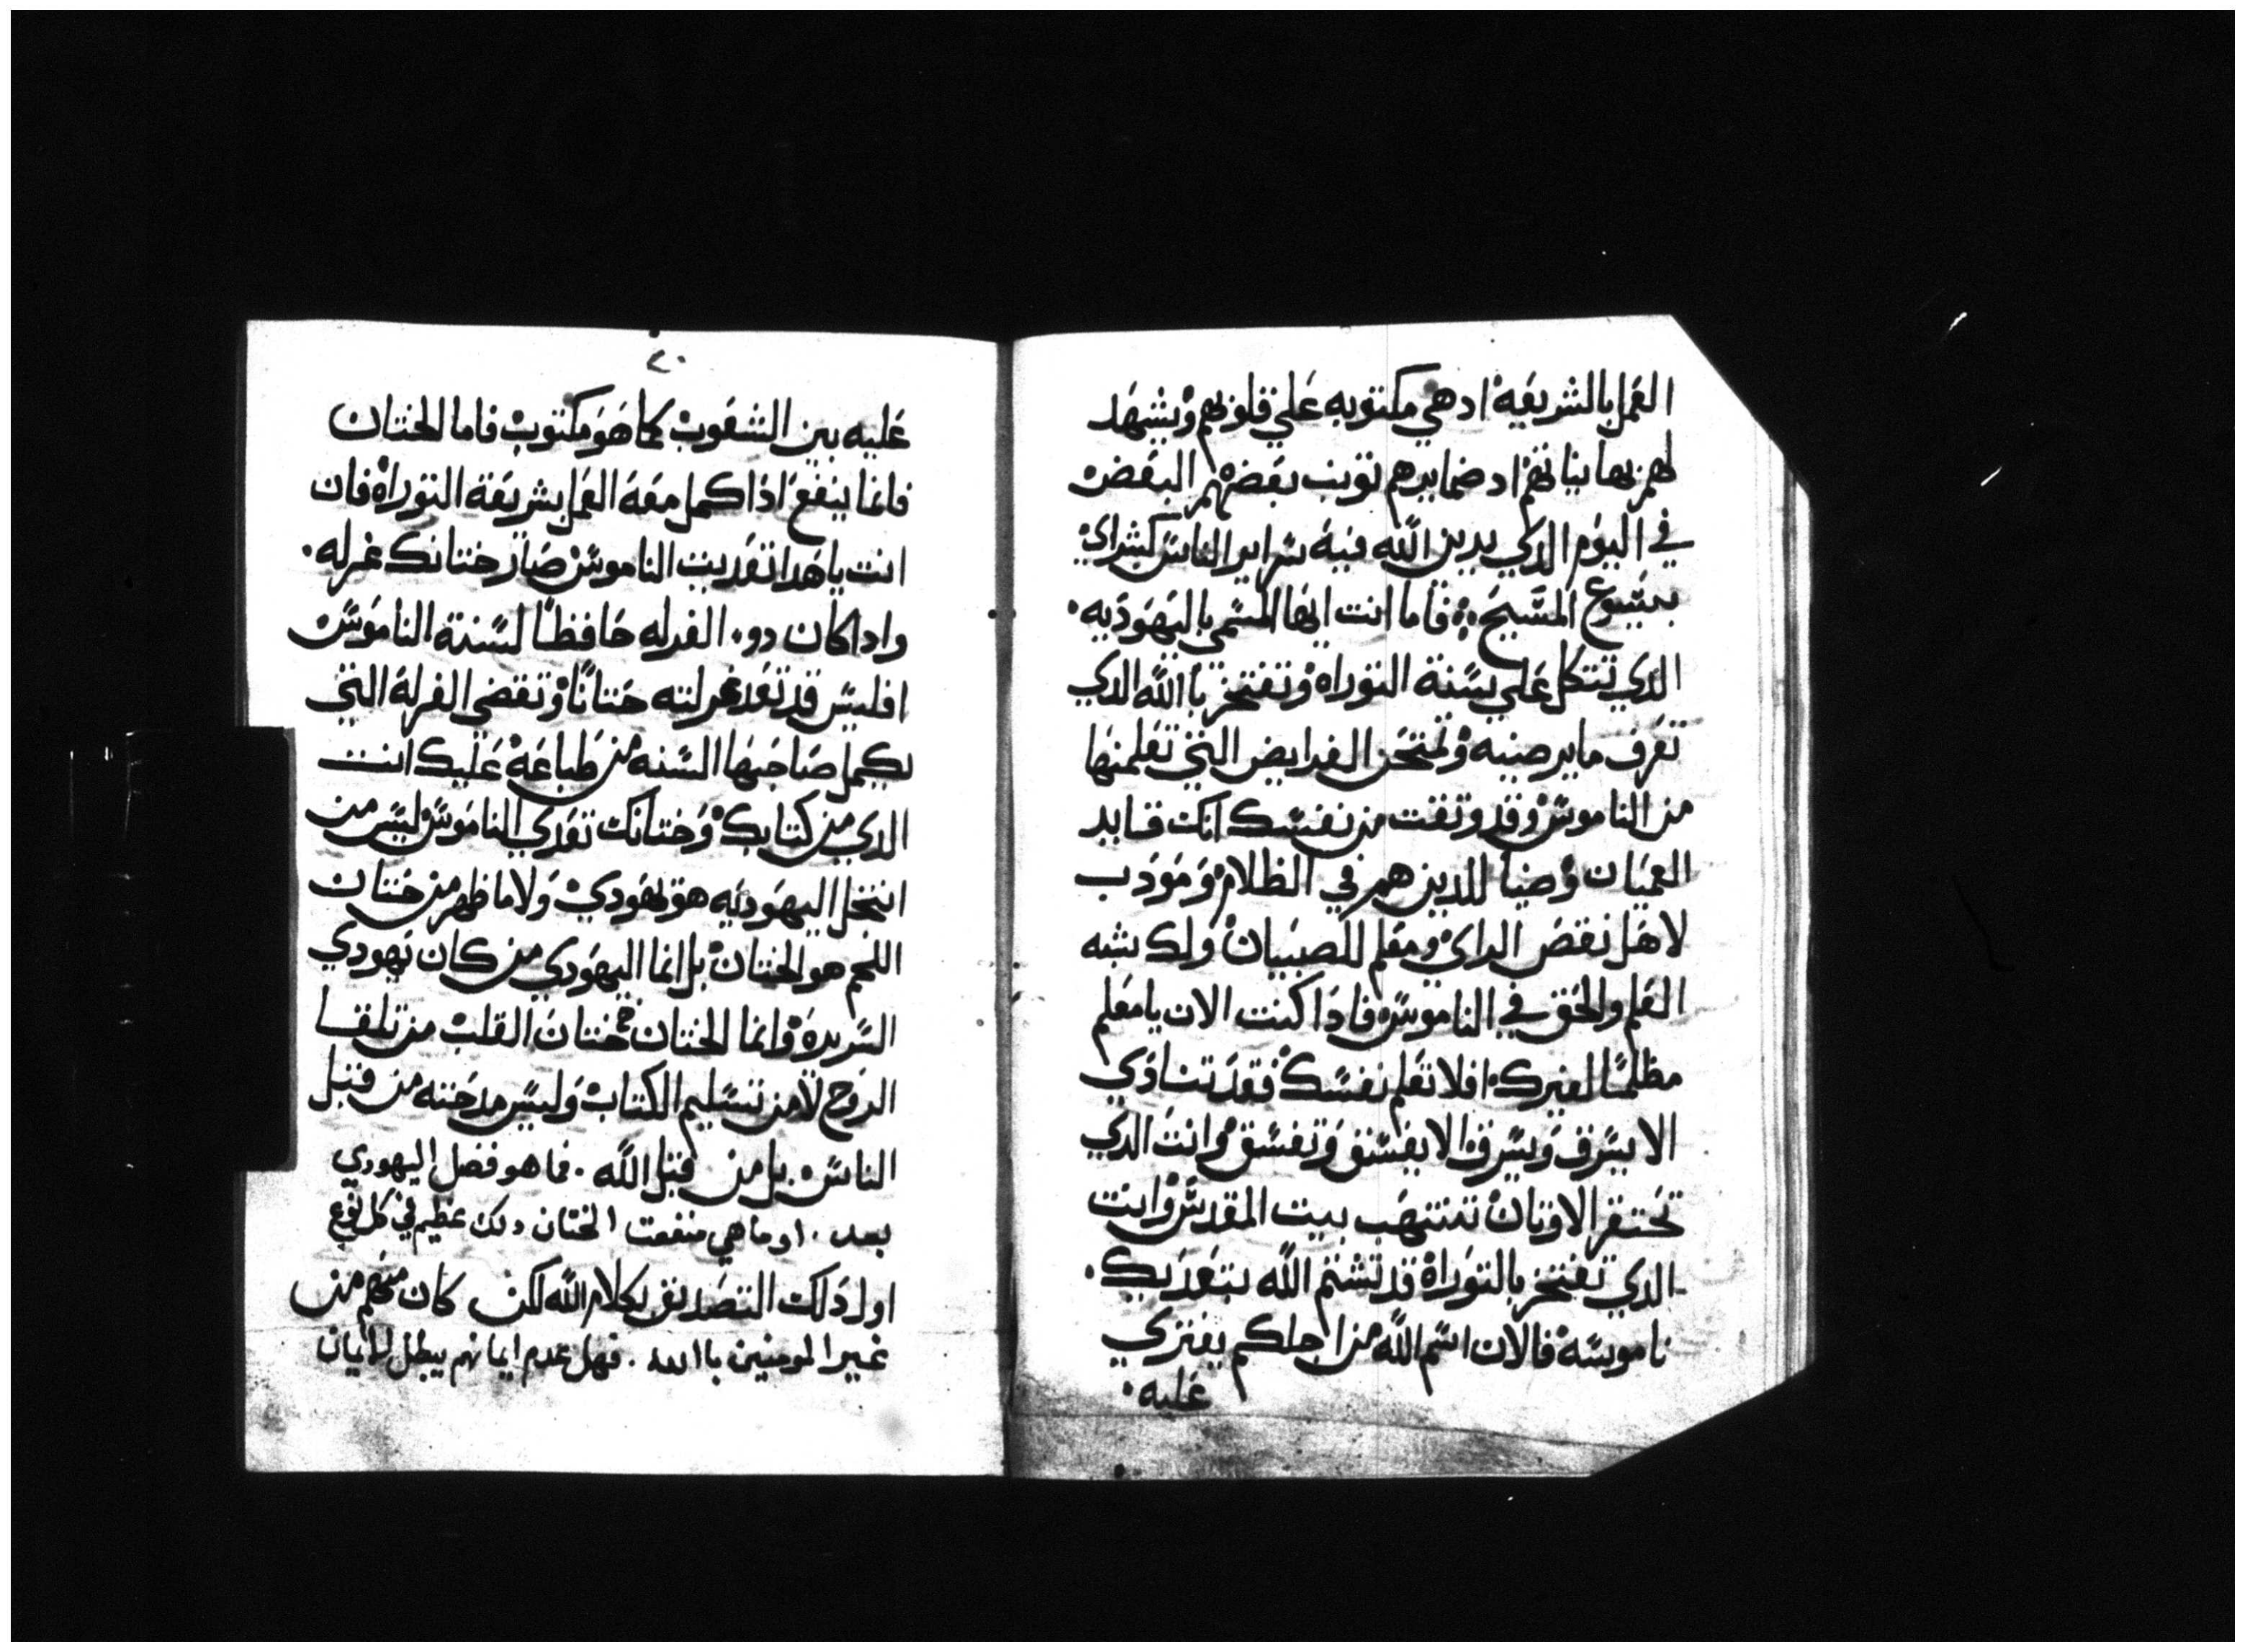 العمل بالشريعه اد هي مكتوبه علي قلوبهم ويشهد
لهم بها نياتهم اد ضمايرهم توبب بعضهم البعض
في اليوم الدي يدين الله فيه سراير الناس كبشراي
بيسوع المسيح فاما انت ايها المسمي باليهوديه
الدي تتكل علي سنة التوراه وتفتخر باالله الدي
تعرف ما يرضيه وتمتحن الفرايض التي تعلمتها
من الناموس وقد وتقت من نفسك انك قايد
العميان وضيا للدين هم في الظلام ومودب
لاهل نقص الراي ومعلم للصبيان ولك شبه
العلم والحق في الناموس فادا كنت الان يا معلم
مظلمًا لغيرك افلا تعلم نفسك فقد تنادي
الا يسرق وتسرق الا يفسق وتفسق وانت الدي
تحتقر الاوتان تنتهب بيت المقدس وانت
الدي تفتخر بالتوراة قد تشتم الله بتعديك
ناموسه فالان اسم الله من اجلكم يفتري
عليه
٢٠
عليه بين الشعوب كما هو مكتوب فاما الختان
فانما ينفع ادا كمل معه العمل بشريعة التوراة فان
انت يا هدا تعديت الناموس صار ختانك غرله
وادا كان دو الغرله حافظًا لسنة الناموس
افليس قد تعد غرلته ختانًا وتقضي الغرلة التي
يكمل صاحبها السنه من طباعه عليك انت
الدي من كتابك وختانك تعدي الناموس ليس من
انتحل اليهوديه هو يهودي ولا ما ظهر من ختان
اللحم هو الختان بل انما اليهودي من كان يهودي
السريره وانما الختان ختان القلب من تلقا
الروح لا من تسليم الكتاب وليس مدحته من قبل
الناس بل من قبل الله . فما هو فضل اليهودي
بعد . او ما هي منفعت الختان دلك عظيم في كل نوع
اول دلك التصديق بكلام الله لكن كان منهم من
غير المومنين باالله . فهل عدم ايمانهم يبطل لايمان